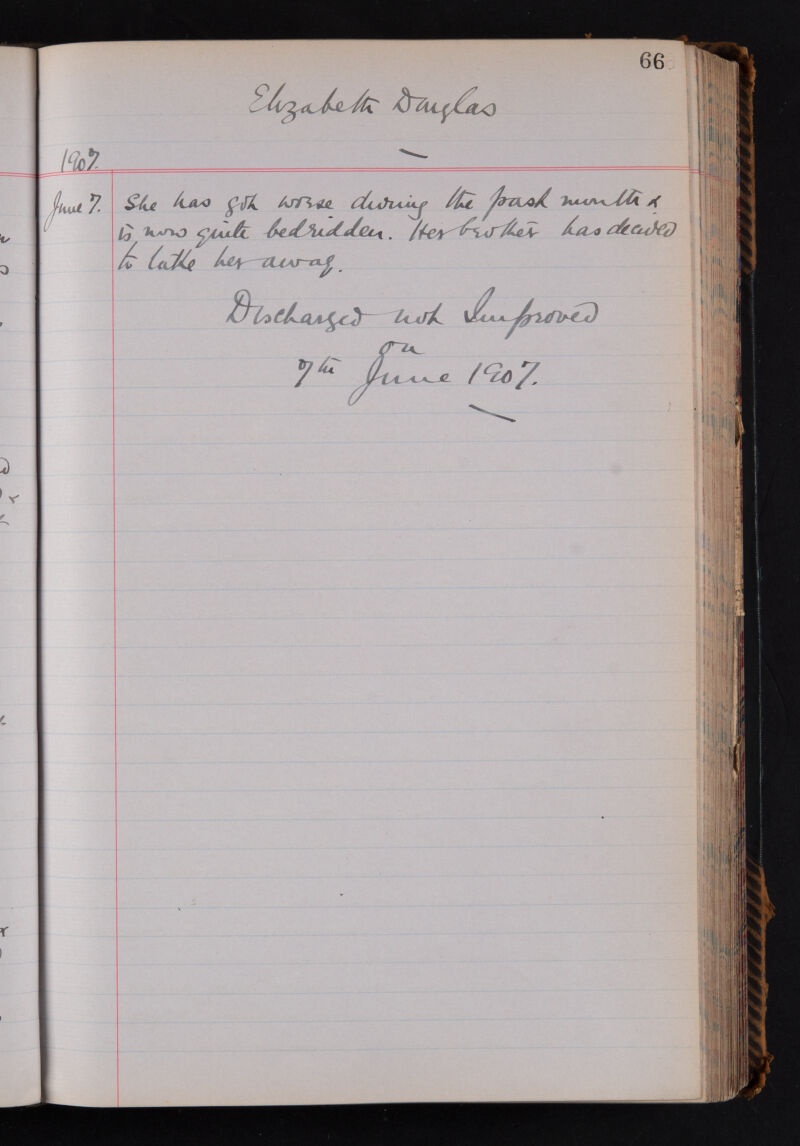 66
Elizabeth Douglas
1907.
June 7. She has got worse during the past month &
is now quite bedridden. Her brother has decided
to take her away.
Discharged not Improved
on
7th June 1907.